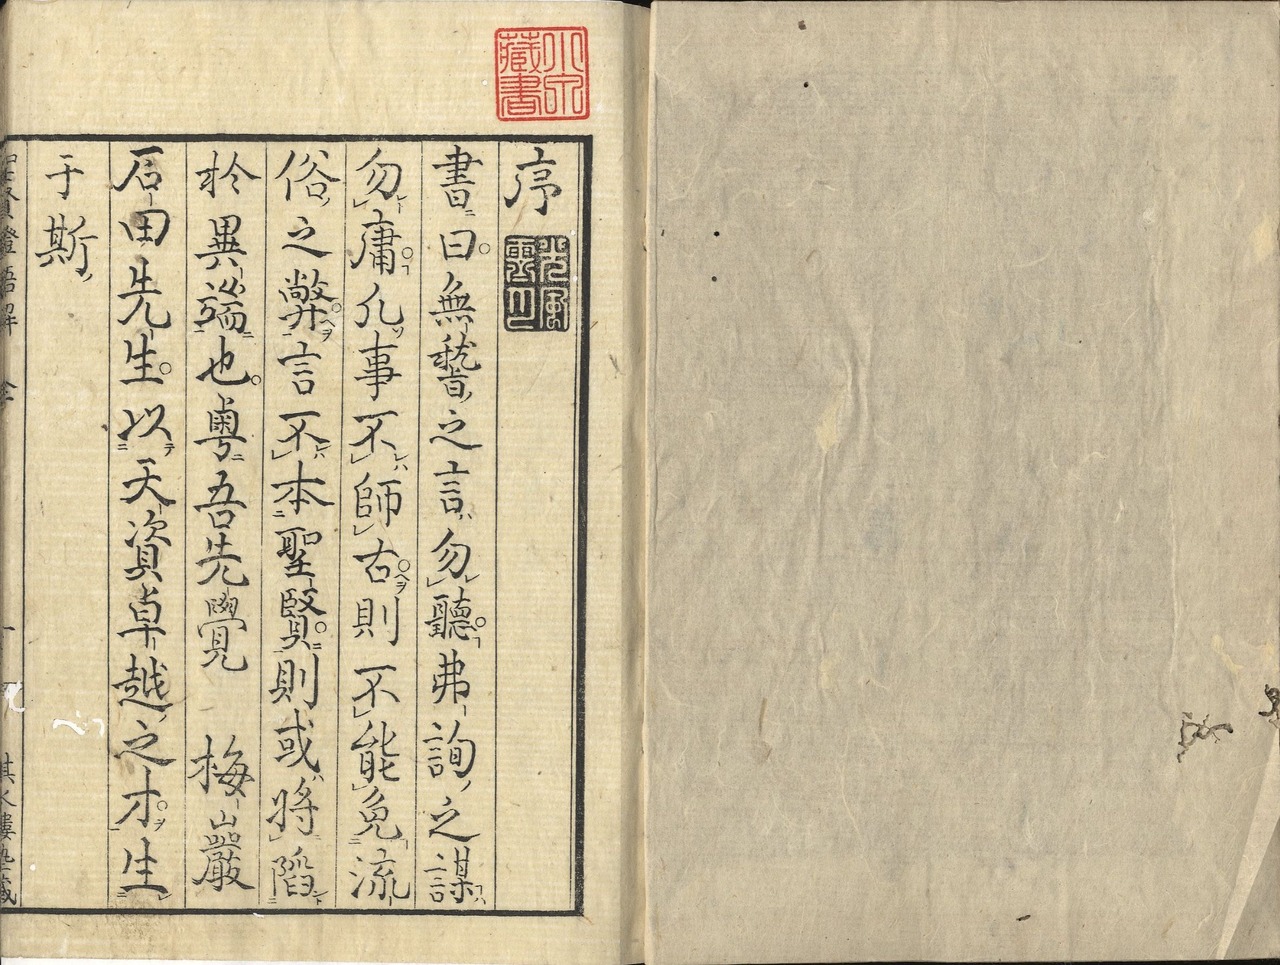 序
書曰無稽之言勿聽弗詢之謀
勿庸凡事不師古則不能免流
俗之弊言不本聖賢則或將陷
於異端也粤吾先覺 梅巖
石田先生以天資卓越之才生
于斯
光風霽月
藏書